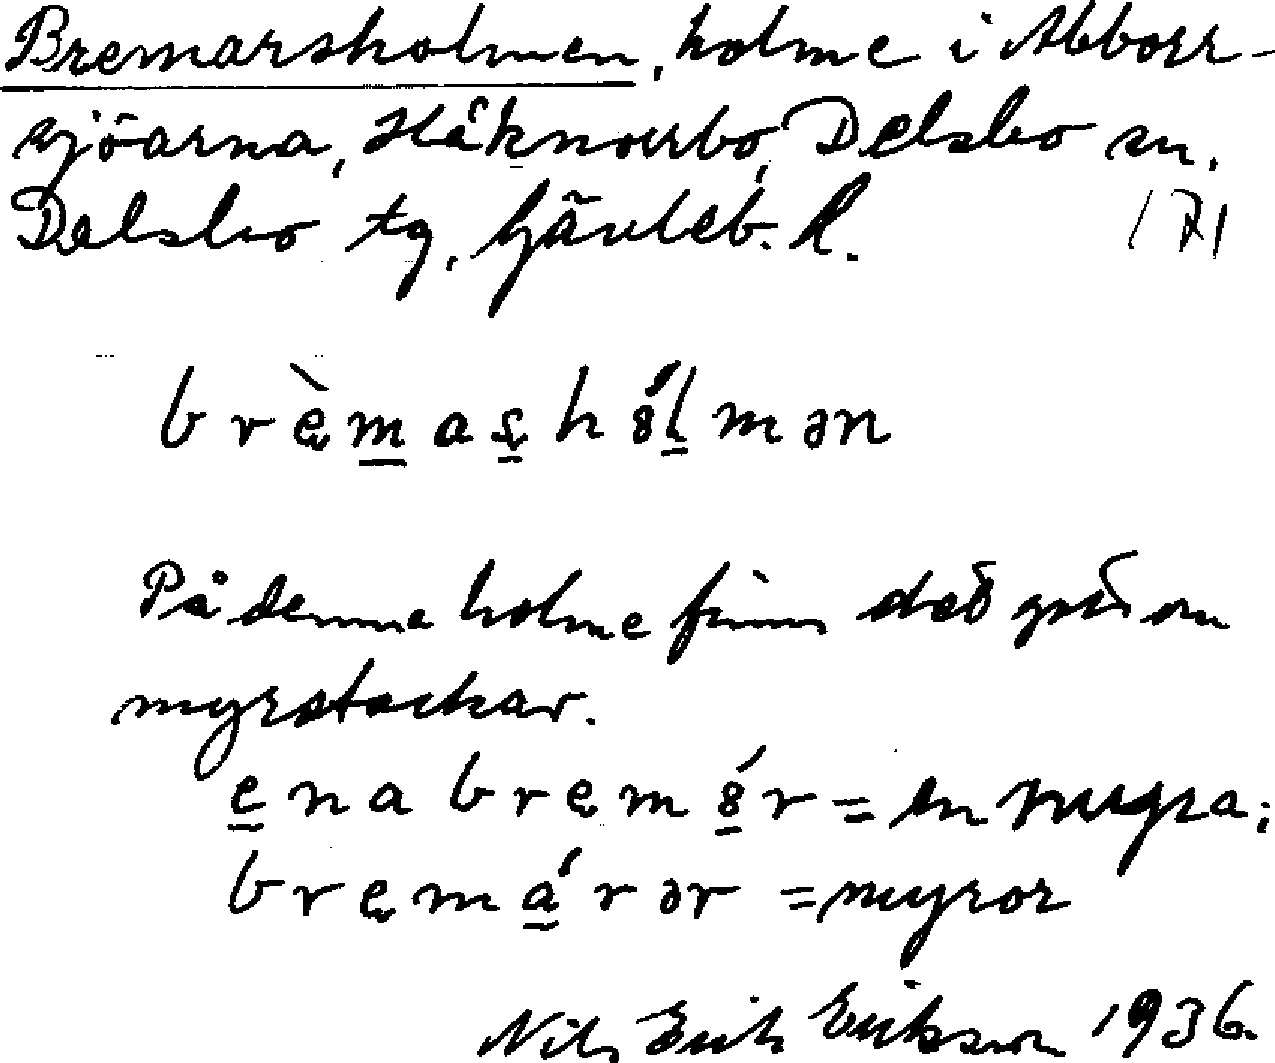 Bremarsholmen, holme i Abborr-
sjöarna, Håknorrbo, Delsbo sn,
Delsbo tg, Gävleb. l. 171
brèmaʂhólmən
På denne holme finns det gott om
myrstackar.
ena bremór = en myra;
bremárər = myror
Nils Erik Eriksson 1936.